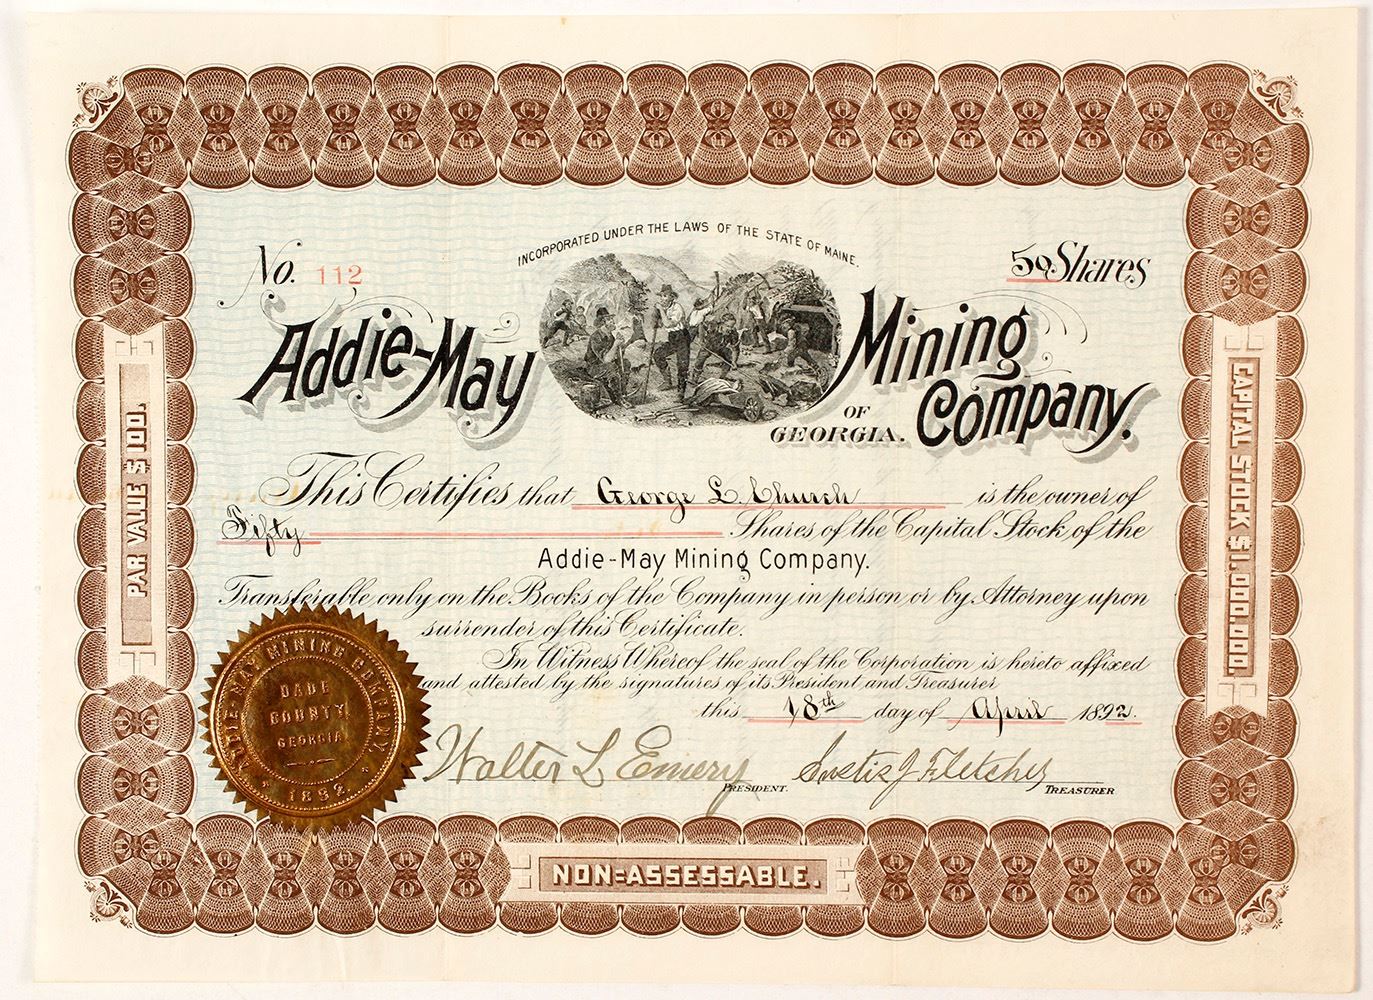 INCORPORATED UNDER THE LAWS OF THE STATE OF MAINE.
No. 112
50 Shares
Addie-May Mining
Company.
OF
GEORGIA.
This Certifies that George L. Church is the owner of
Fifty Shares of the Capital Stock of the
Addie-May Mining Company.
Transferable only on the Books of the Company in person or by Attorney upon
surrender of this Certificate.
In Witness Whereof the seal of the Corporation is hereto affixed
and attested by the signatures of its President and Treasurer
this 18th day of April 1892.
Walter L Emery
PRESIDENT.
Justis J Fletcher
TREASURER
ADDIE-MAY MINING COMPANY.
DADE
COUNTY
GEORGIA
1892
PAR VALUE $100.
CAPITAL STOCK $1,000,000
NON=ASSESSABLE.